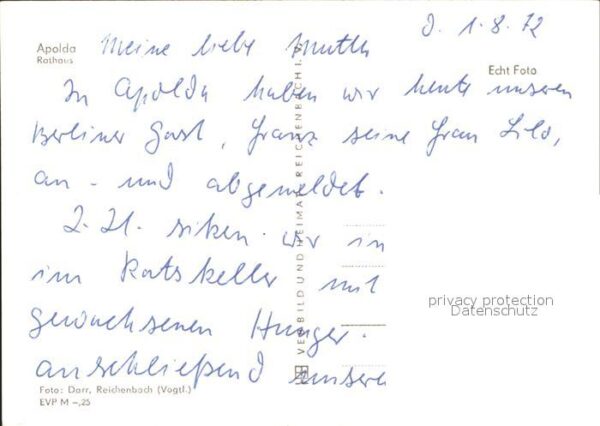 Apolda
Rathaus
Echt Foto
D. 1.8.72
Meine liebe Mutter
In Apolda haben wir heute unseren
Berliner Gast, Franz seine Frau Lilo,
an- und abgemeldet.
Z. Zt. sitzen wir in
im Ratskeller mit
gewachsenen Hunger.
anschließend unsere
VEB BILD UND HEIMAT REICHENBACH I. V.
privacy protection
Datenschutz
Foto: Darr, Reichenbach (Vogtl.)
EVP M –,25